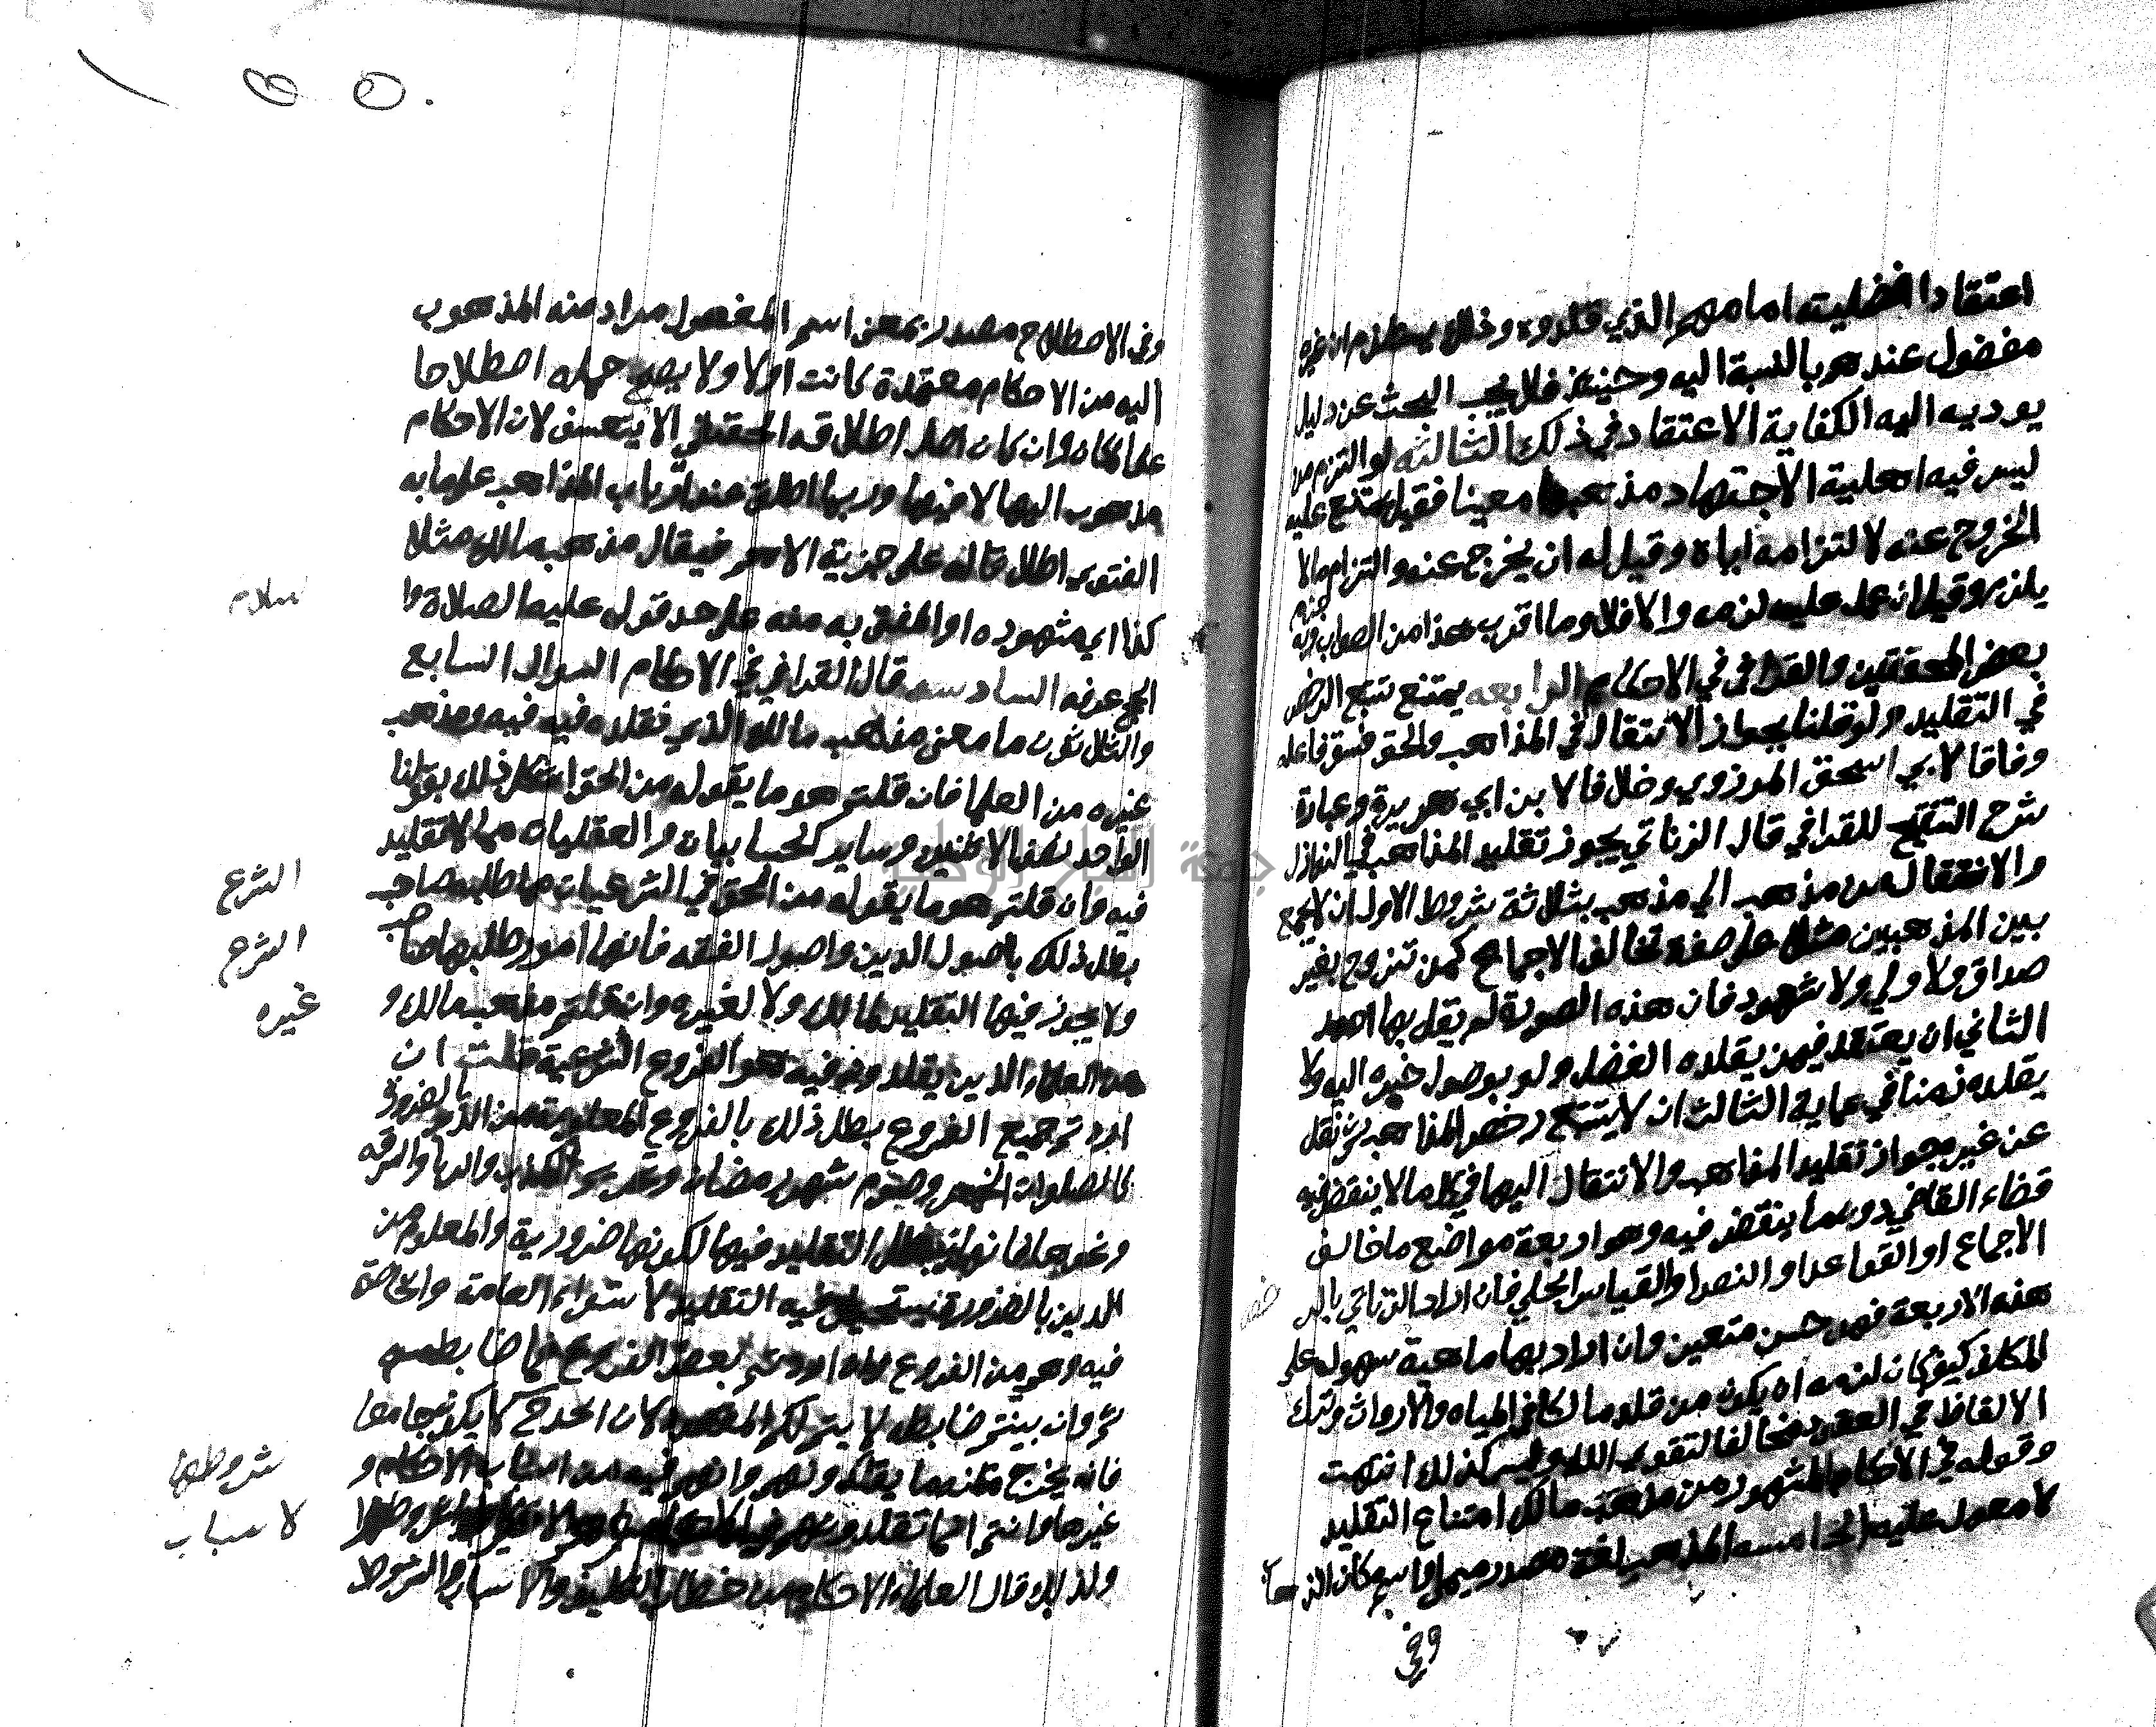 اعتقاد افضلية امامهم الذي قلدوه وذلك يستلزم ان غيره
مفضول عندهم بالنسبة اليه وحينئذ فلا يجب البحث عن دليل
يوديه اليه الكفاية الاعتقاد في ذلك الثالثه لو التزم من
ليس فيه اهلية الاجتهاد مذهبا معينا فقيل يمتنع عليه
الخروج عنه لالتزامه اياه وقيل له ان يخرج عنه والتزام ما لا
يلزم وقيل ان عمل عليه لزمه والا فلا وما اقرب هذا من الصواب وبه جزم
بعض المحققين والقرافي في الاحكام الرابعه يمتنع تتبع الرخص
في التقليد ولو قلنا بجواز الانتقال في المذاهب والحق فسق فاعله
وفاقا لابي اسحق المروزي وخلافا لابن ابي هريرة وعبارة
شرح التنقيح للقرافي قال الزناتي يجوز تقليد المذاهب في النوازل
والانتقال من مذهب الى مذهب بثلاثة شروط الاول ان لا يجمع
بين المذهبين مثلا على صفة تخالف الاجماع كمن تزوج بغير
صداق ولا ولي ولا شهود فان هذه الصورة لم يقل بها احد
الثاني ان يعتقد فيمن يقلده الفضل ولو بوصول خبره اليه ولا
يقلده زمنا في عماية الثالث ان لا يتتبع رخص المذاهب ثم نقل
عن غيره جواز تقليد المذاهب والانتقال اليها في كل ما لا ينقض فيه
قضاء القاضي دون ما ينقض فيه وهو اربعة مواضع ما خالف
الاجماع او القواعد او النص او القياس الجلي فان اراد الزناتي بالر
خص
هذه الاربعة فهو حسن متعين وان اراد بها ما فيه سهولة على
المكلف كيف كان لزمه ان يكون من قلد مالكا في المياه والارواث وترك
الالفاظ في العقود مخالفا لتقوى الله وليس كذلك انتهت
وقوله في الاحكام المشهور من مذهب مالك امتناع التقليد
لا معول عليه الخامسه المذهب لغة مصدر ميمي او اسم مكان الذهاب
وفي
وفي الاصطلاح مصدر بمعنى اسم المفعول مراد منه المذهوب
اليه من الاحكام معتمدة كانت او لا ولا يصح حمله اصطلاحا
على المكان وان كان اصل اطلاقه الحقيقي الا بتعسف لان الاحكام
مذهوب اليها لا فيها وربما اطلق عند ارباب المذاهب على ما به
الفتوى اطلاقا له على جزئية الاهم فيقال مذهب مالك مثلا
كذا اي مشهوره او المفتى به منه على حد قوله عليه الصلاة وا
لسلام
الحج عرفه السادسه قال القرافي في الاحكام السوال السابع
والثلاثون ما معنى مذهب مالك الذي نقلده فيه ومذهب
غيره من العلما فان قلتم هو ما يقوله من الحق اشكل ذلك بقولنا
الواحد نصف الاثنين وساير الحسابيات والعقليات مما لا تقليد
فيه وان قلتم هو ما يقوله من الحق في الشرعيات مما طلبه صاحب
الشرع
بطل ذلك باصول الدين واصول الفقه فانها امور طلبها صاحب
الشرع
ولا يجوز فيها التقليد لمالك ولا لغيره وان قلتم مذهب مالك و
غيره
من العلماء الذين يقلدونهم فيه هو الفروع الشرعية قلت ان
اردتم جميع الفروع بطل ذلك بالفروع المعلومة من الدين بالضرورة
كالصلوات الخمس وصوم شهر رمضان وتحريم الكذب والربا والسرقه
ونحوها فانها يبطل التقليد فيها لكونها ضرورية والمعلوم من
الدين بالضرورة يستحيل فيه التقليد لاستواء العامة والخاصة
فيه وهو من الفروع وان اردتم بعض الفروع فما ضابطه
ثم وان بينتم ضابطه لا يتم لكم المقصود لان الحد ح لا يكون جامعا
فانه يخرج عنه ما يقلدونهم فيه من اسباب الاحكام و
شروطها
غيرها وانتم انما تقلدونهم في
لاسباب
ولذلك قال العلماء الاحكام من خطاب التكليف والاسباب والشروط